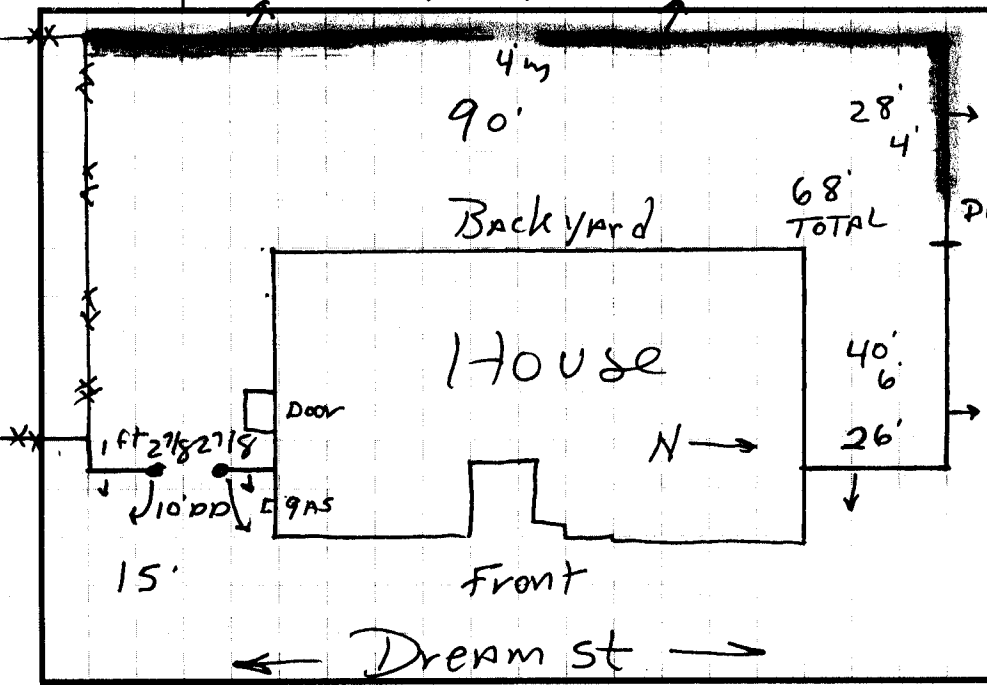 4'
90'
28'
4'
68'
TOTAL
Backyard
House
40'
6'
Door
N
26'
1 ft 2 7/8 2 7/8
10' DD
gas
15'
Front
Dream st